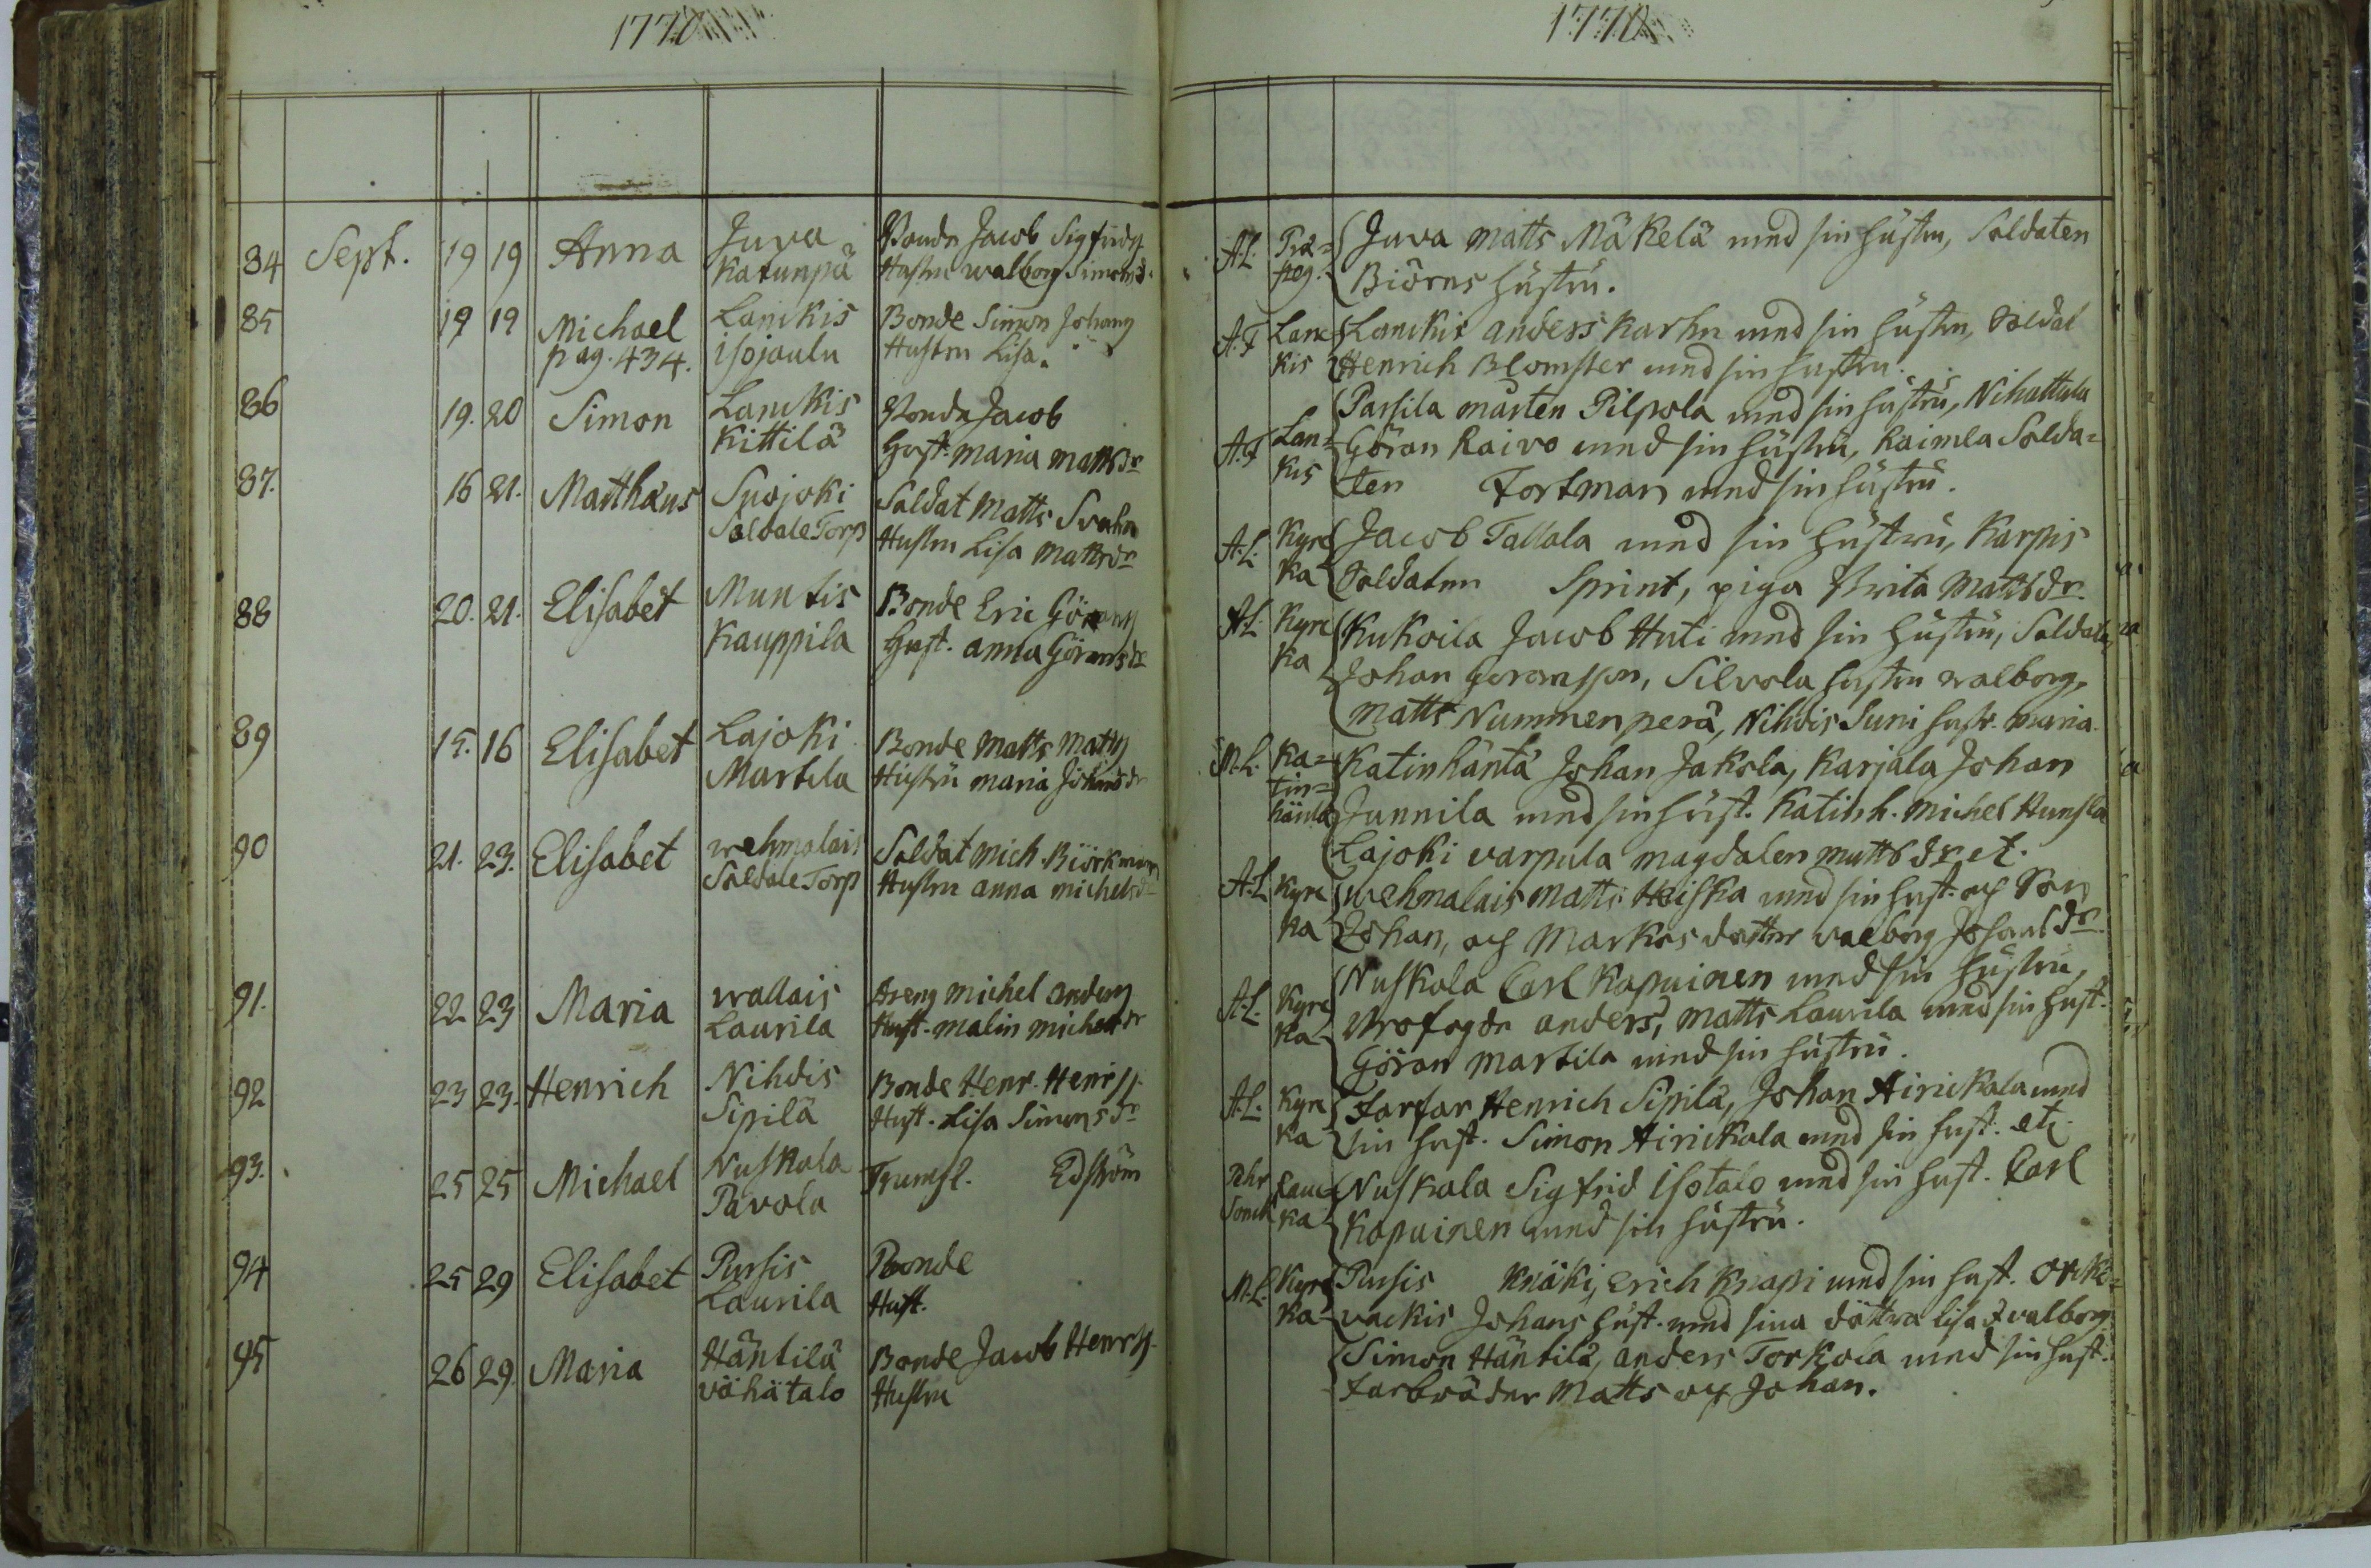 1770
1770
84 Sept. 19 19 Anna Juva Bonde Jacob Sigfridss
Katunpä Hustru walborg Simonsd.
A.L. Præ= Juva Matts Mäkelä med sin hustru, Soldaten
steg. Biörns hustru.
85 19 19 Michael Lanckis Bonde Simon Johanss
pag. 434. isojaulu Hustru Lisa.
A.F Lanc= Lanckis anders karhu med sin hustru, Soldat
kis Henrich Blomster med sin hustru.
86 19. 20 Simon Lanckis Bonde Jacob
Kittilä Hust. maria mattsdr
Parsila mårten Pilpola med sin hustru, Nihattula
A.F Lan= Göran Raivo med sin hustru, Raimela Solda=
kis ten Fortman med sin hustru.
87. 16 21. Matthæus Suojoki Soldat Matts Svahn
SoldateTorp Hustru Lisa Mattsdr
A.L. Kyrc Jacob Tallola med sin hustru, Karpis
ka Soldaten Sprint, piga Brita Mattsdr.
88 20. 21. Elisabet Muntis Bonde Eric Göranss
Kauppila Hust. anna Göransdr
A.L. Kyrc Kukoila Jacob Huti med sin hustru, Soldaten
ka Johan Göransson, Silvola hustru walborg,
matts Nummenperä, Nihdis Suni hustr. maria.
89 15. 16 Elisabet Lajoki Bonde Matts Matss
Martila Hustru maria Johansdr
M.L. Ka= Katinhäntä Johan Jakola, Karjala Johan
tin= Junnila med sin hust. Katinh. Michel Hunsla
hänta Lajoki varpula magdalen mattsdr etc.
90 21. 23. Elisabet wehmalais Soldat Mich. Biörkman
SoldateTorp Hustru anna michelsdr
A.L. Kyrc wehmalais Matts Heiska med sin hust. och Son
ka Johan, och Markus dotter valborg Johansdr.
91. 22 23 Maria wallais dreng michel anderss
Laurila Hust. malin michelsdr
Nuskala Carl Kapuinen med sin hustru,
A.L. Kyrc Profogden anders, Matts Laurila med sin hust.
ka Göran Martila med sin hustru.
92 23 23. Henrich Nihdis Bonde Henr. Henrss
Sipilä Hust. Lisa Simonsdr
A.L. Kyrc Farfar Henrich Sipilä, Johan Airickala med
ka sin hust. Simon Airickala med sin hust. etc.
93. 25 25 Michael Nuskala Trumsl. Edström
Pavola
Pehr Lauc= Nuskala Sigfrid Isotalo med sin hust. Carl
Sonck ka Kapuinen med sin hustru.
94 25 29 Elisabet Pursis Bonde
Laurila Hust.
M.L. Kyrc Pursis knäki, Erich Knapi med sin hust. Orki=
ka vackis Johans hust. med sina döttra lisa & valborg
95 26 29. Maria Häntilä Bonde Jacob Henrss.
vähätalo Hustru
Simon Häntilä, anders Torkola med sin hust.
Farbröder Matts och Johan.